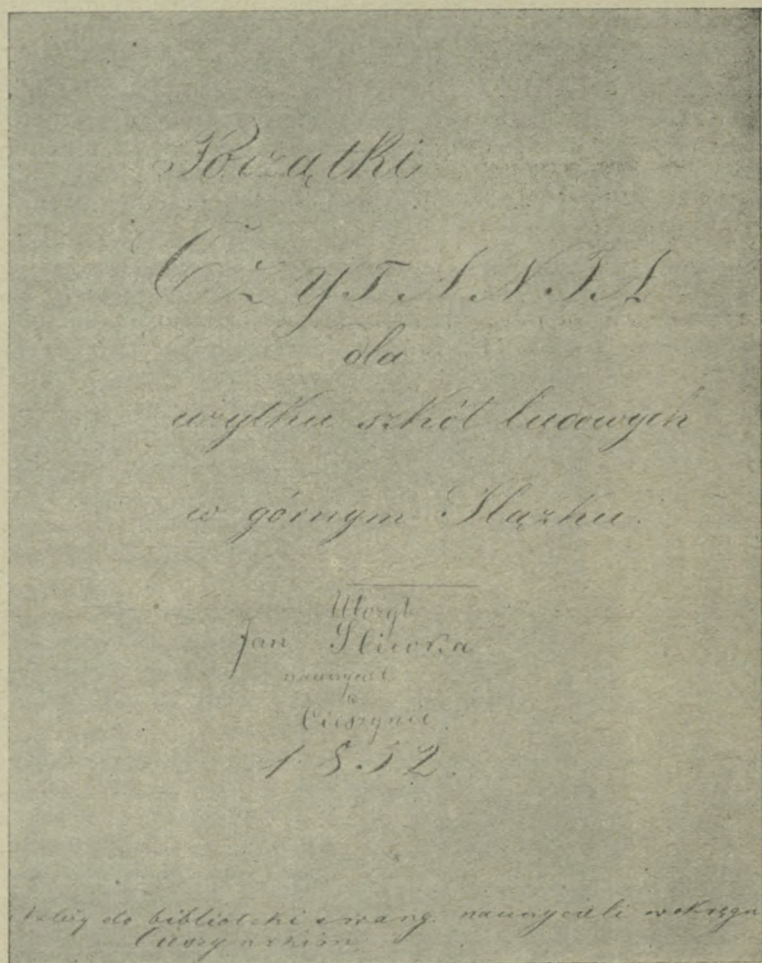 Początki
CZYTANIA
dla
użytku szkół ludowych
w górnym Slązku.
Ułozył
Jan Sliwka
nauczyciel
w
Cieszynie.
1852.
należy do biblioteki ewang. nauczycieli w okręgu
Cieszyńskim